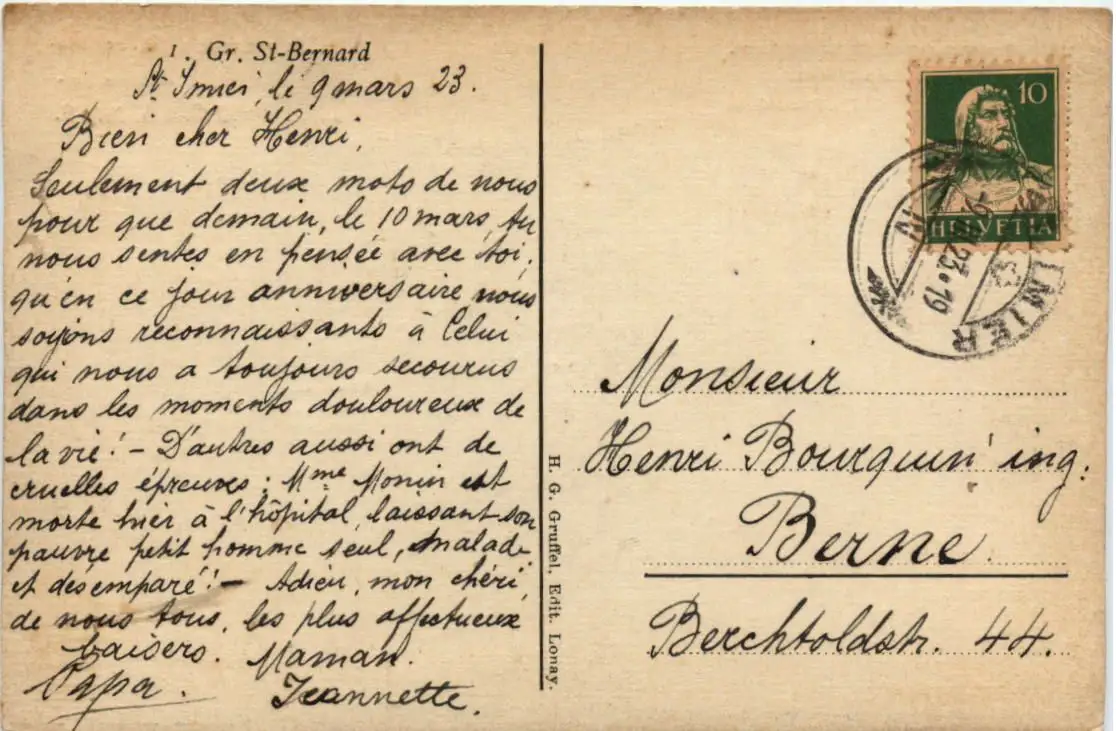 1. Gr. St-Bernard
St Imier, le 9 mars 23.
Bien cher Henri,
Seulement deux mots de nous
pour que demain, le 10 mars, tu
nous sentes en pensée avec toi,
qu'en ce jour anniversaire nous
soyons reconnaissants à Celui
qui nous a toujours secourus
dans les moments douloureux de
la vie! - D'autres aussi ont de
cruelles épreuves: Mme Monin est
morte hier à l'hôpital, laissant son
pauvre petit homme seul, malade
et désemparé! - Adieu, mon chéri,
de nous tous, les plus affectueux
baisers. Maman.
Papa.
Jeannette.
H. G. Gruffel, Edit. Lonay.
10
HELVETIA
IMIER
23.19
Monsieur
Henri Bourquin ing.
Berne
Berchtoldstr. 44.